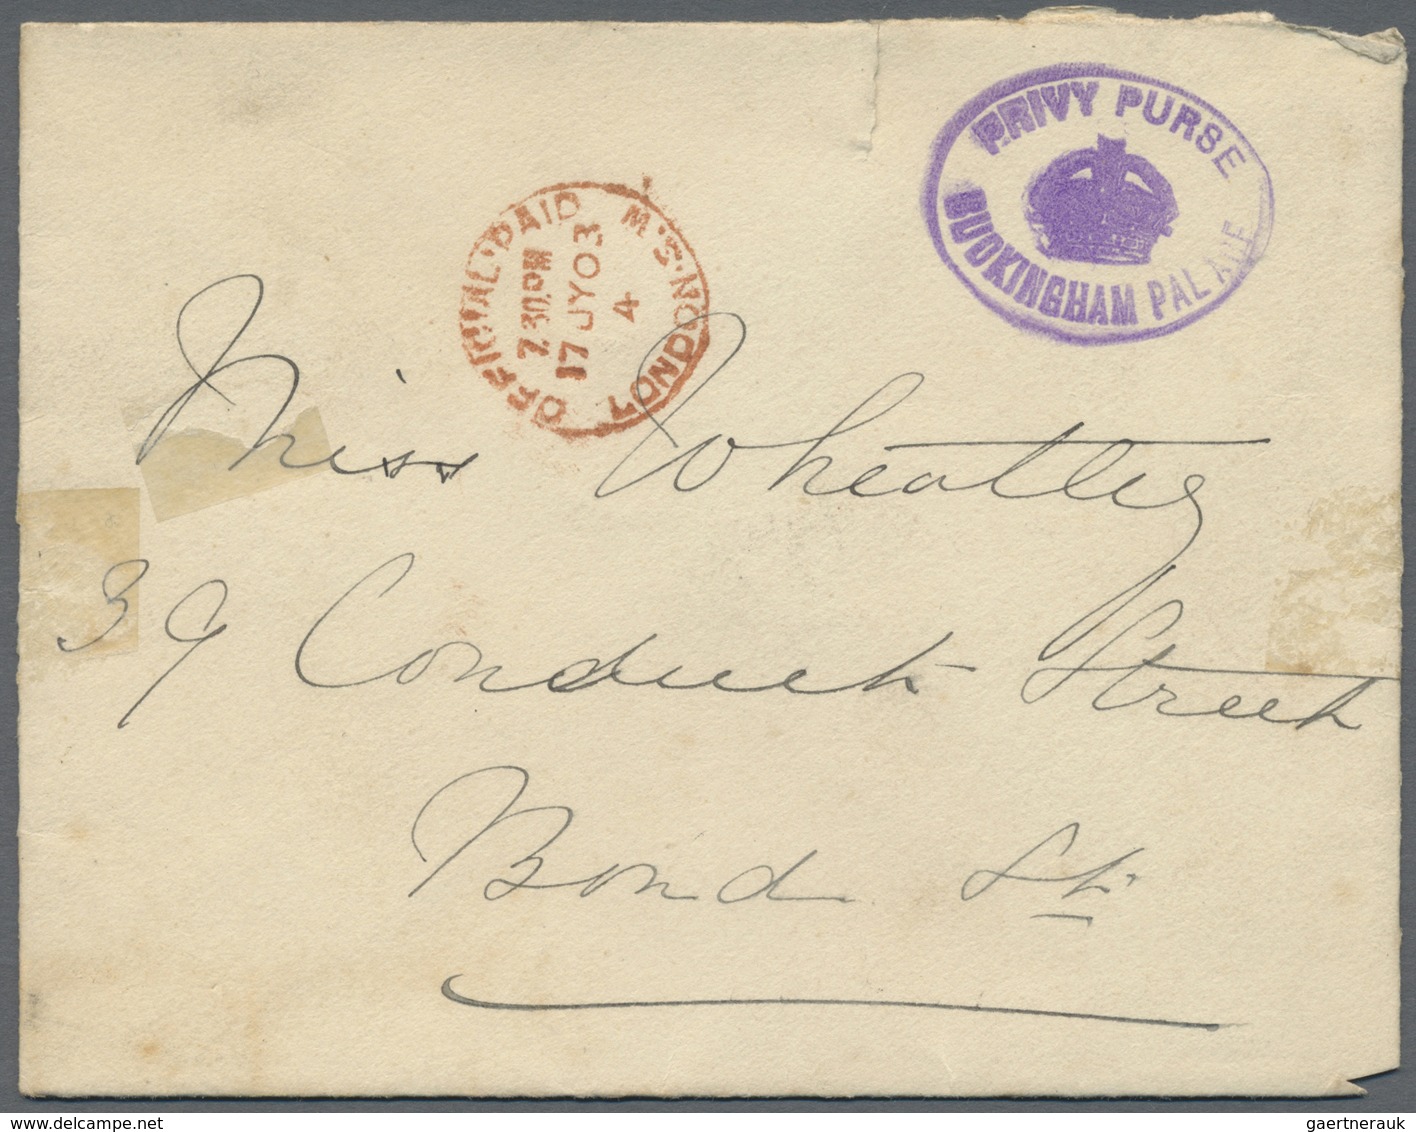 PRIVY PURSE
BUCKINGHAM PALACE
OFFICIAL·PAID
LONDON·S.W.
7.30PM
17 JY 03
4
Miss Wheatley
39 Conduit Street
Bond St.
gaertnerauk